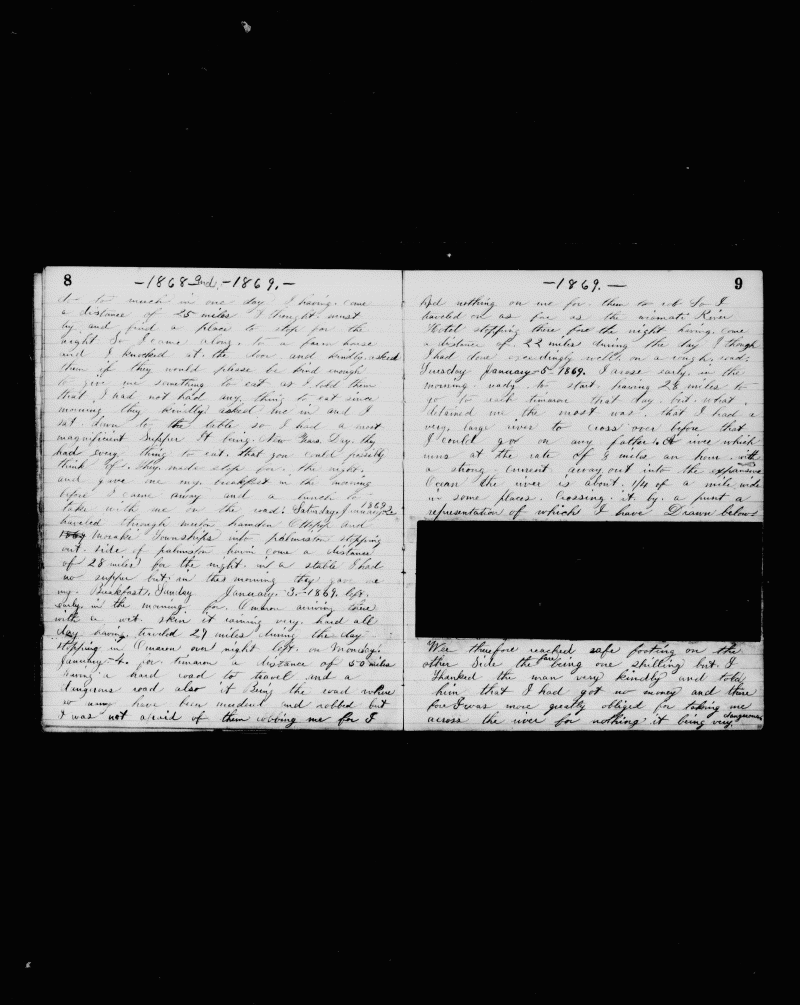 8
-1868 and -1869.-
to much in one day I having come
a distance of 25 miles I thought must
try and find a place to stop for the
night So I came along to a farm house
and I knocked at the door and kindly asked
them if they would please be kind enough
to give me something to eat as I told them
that I had not had any thing to eat since
morning they kindly asked me in and I
sat down to the table so I had a most
magnificent Supper It being New Years Day they
had every thing to eat that you could possibly
think of. They made stop for the night
and gave me my breakfast in the morning
before I came away and a lunch to
take with me on the road. Saturday January 2 1869
traveled through hamden Otepopo and
Moraki Townships into palmiston stopping
out side of palmiston havin come a distance
of 28 miles for the night in a stable I had
no supper but in this morning they gave me
my Breakfast. Sunday January-3-1869. left
early in the morning for Omaru ariving there
with a wet skin it raining very hard all
day having traveled 29 miles during the day
stopping in Omaru over night left on Monday
January-4 for timaron a distance of 50 miles
being a hard road to travel and a
dangerous road also it Being the road where
so many have been murdered and robbed but
I was not afraid of them robbing me for I
-1869.-
9
had nothing on me for them to rob So I
traveled on as far as the River
Hotel stopping there for the night having come
a distance of 22 miles during the day I though
I had done exceedingly well on a rough road.
Tuesday January-5-1869. I arose early in the
morning ready to start having 28 miles to
go to reach timaron that day but what
detained me the most was that I had a
very large river to cross over before that
I could goe on any father. A river which
runs at the rate of 8 miles an hour with
a strong current away out into the expansive
Ocean the river is about 1/4 of a mile wide
in some places. Crossing it by a punt a
representation of which I have Drawn below
Wee therefore reached safe footing on the
other Side the fare being one shilling but I
thanked the man very kindly and told
him that I had got no money and there
fore I was more greatly obliged for taking me
across the river for nothing it being very dangerous